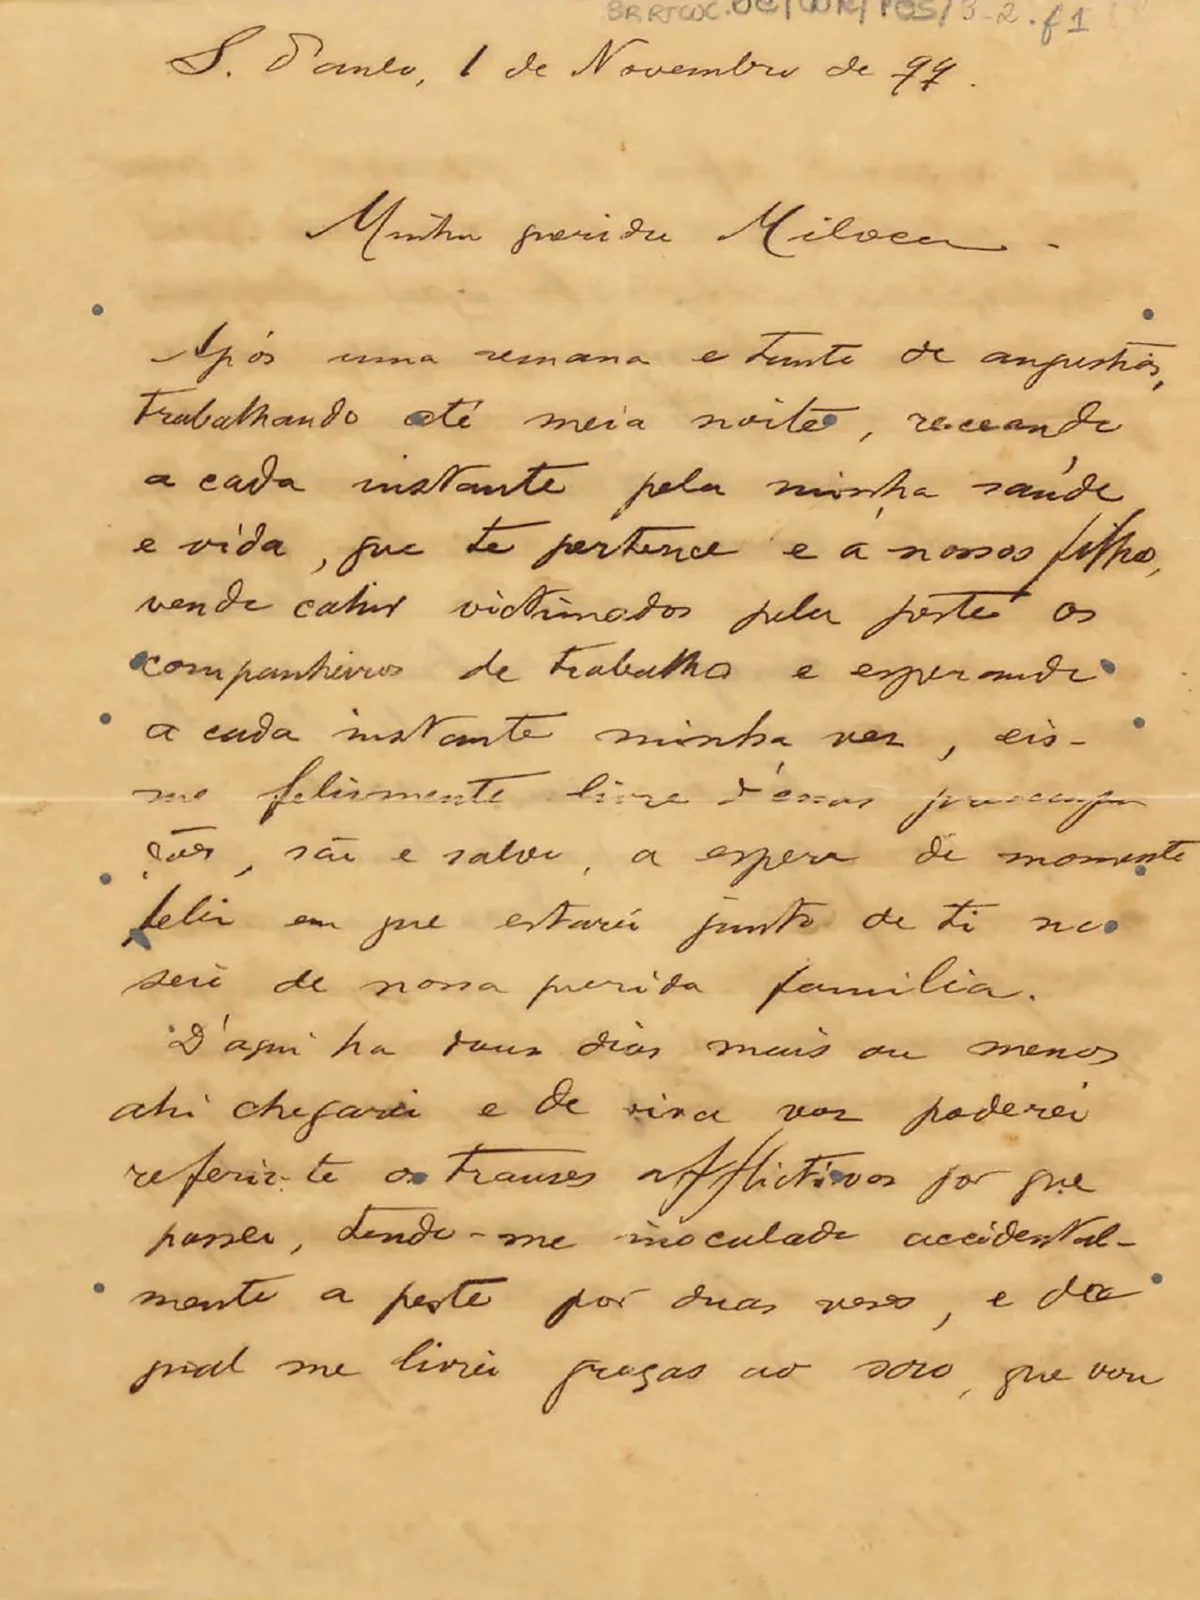 BRRJCOC.OC/COR/PES/3-2.f1
S. Paulo, 1 de Novembro de 99.
Minha querida Miloca.
Após uma semana e tanto de angustias,
trabalhando até meia noite, receando
a cada instante pela minha saúde
e vida, que te pertence e a nossos filhos,
vendo cahir victimados pela peste os
companheiros de trabalho e esperando
a cada instante minha vez, eis-
me felizmente livre d'essas preoccupa
ções, são e salvo, a espera do momento
feliz em que estarei junto de ti no
seio de nossa querida familia.
D'aqui ha dous dias mais ou menos
ahi chegarei e de viva voz poderei
referir-te os transes afflictivos por que
passei, tendo-me inoculado accidental-
mente a peste por duas vezes, e da
qual me livrei graças ao soro, que vou